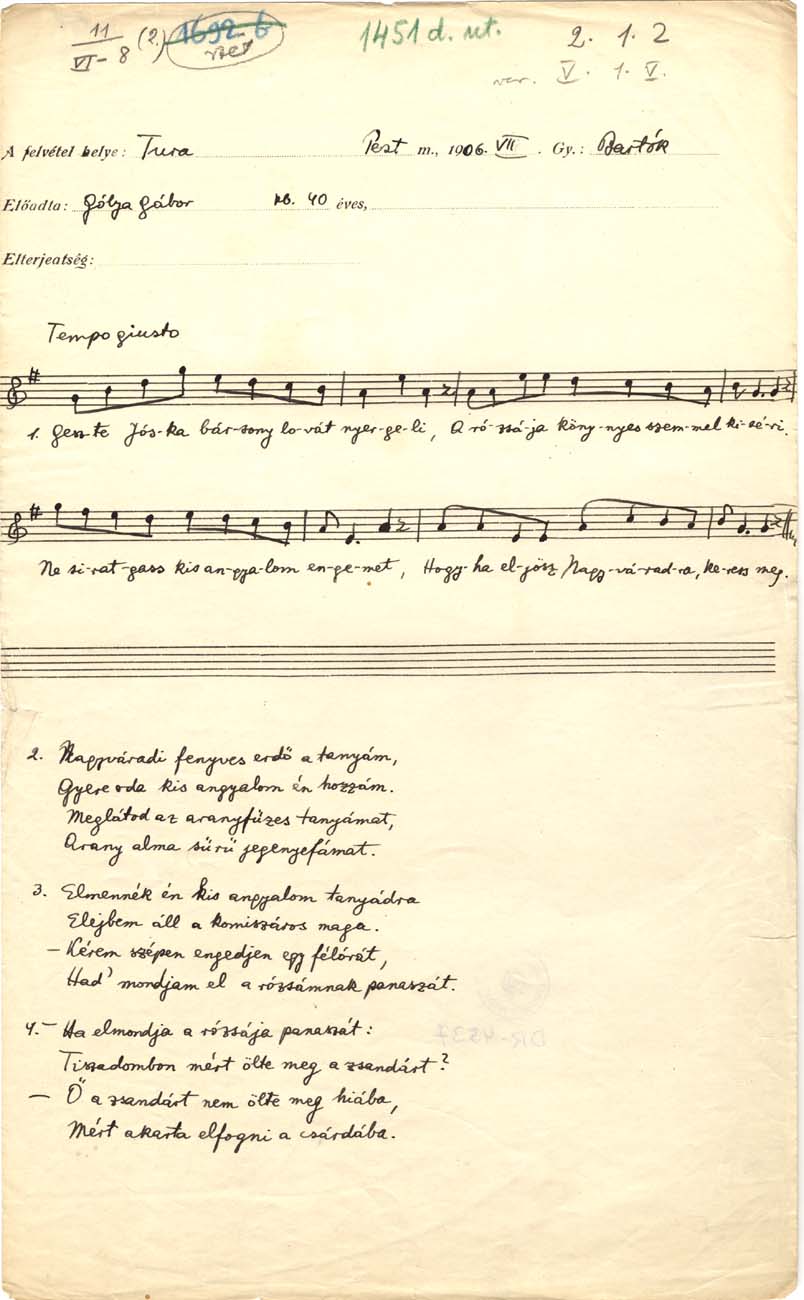 11 / VI-8 (2.) 1692 b 1451 d. ut. 2. 1. 2
var. V. 1. V.
A felvétel helye: Tura Pest m., 1906. VII. Gy.: Bartók
Előadta: Gólya Gábor kb. 40 éves,
Elterjeatség:
Tempo giusto
1. Gesz-te Jós-ka bár-sony lo-vát nyer-ge-li, A ró-zsá-ja köny-nyes szem-mel ki-sé-ri.
Ne si-rat-gass kis an-gya-lom en-ge-met, Hogy-ha el-jösz Nagy-vá-rad-ra, ke-ress meg.
2. Nagyváradi fenyves erdő a tanyám,
Gyere oda kis angyalom én hozzám.
Meglátod az aranyfüzes tanyámat,
Arany alma sűrű jegenyefámat.
3. Elmennék én kis angyalom tanyádra
Elejbem áll a komiszáros maga.
– Kérem szépen engedjen egy félórát,
Had' mondjam el a rózsámnak panaszát.
4. – Ha elmondja a rózsája panaszát:
Tiszadombon mért ölte meg a zsandárt?
– Ő a zsandárt nem ölte meg hiába,
Mért akarta elfogni a csárdába.
DR-4537